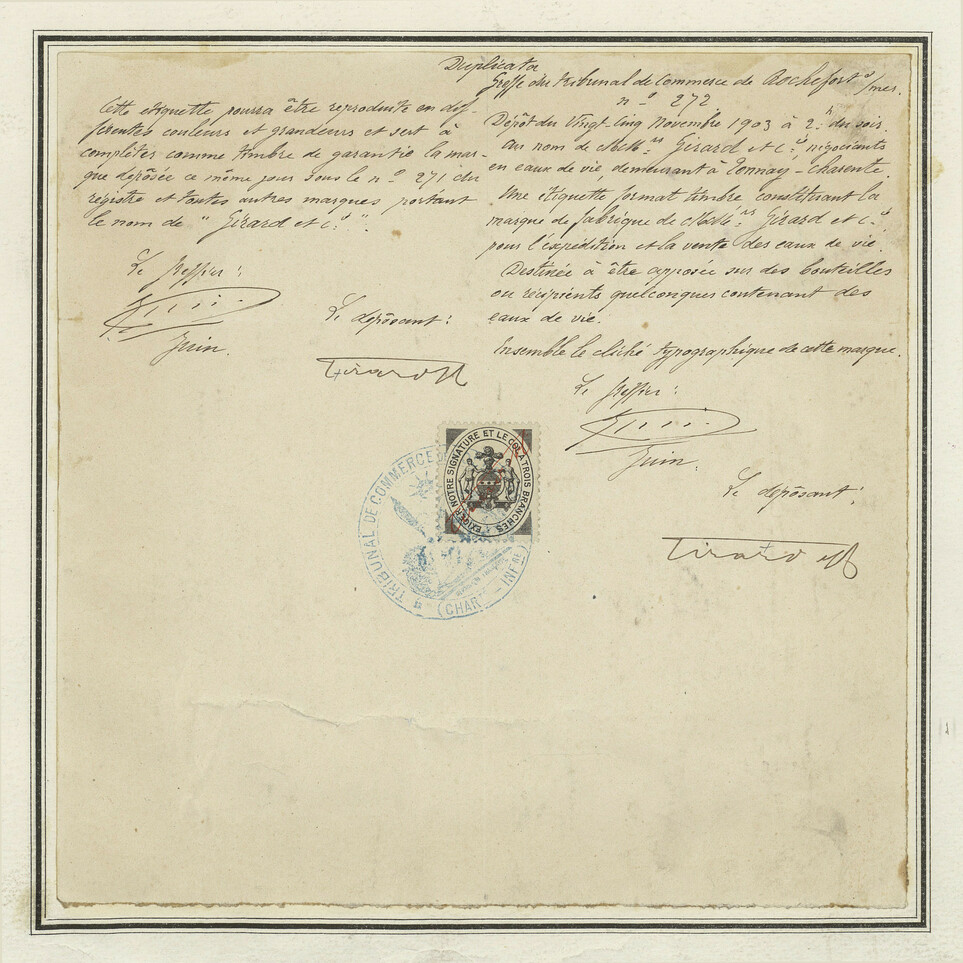 Duplicata
Greffe du tribunal de Commerce de Rochefort s/mer.
n° 272
Dépôt du Vingt-Cinq Novembre 1903 à 2h du soir.
Au nom de MM.rs Girard et Cie, négociants
en eaux de vie, demeurant à Tonnay-Charente.
Une étiquette format timbre constituant la
marque de fabrique de MM.rs Girard et Cie
pour l'expédition et la vente des eaux de vie.
Destinée à être apposée sur des bouteilles
ou récipients quelconques contenant des
eaux de vie.
Ensemble le cliché typographique de cette marque.
Le greffier:
Juin.
Le déposant:
Girard
Cette étiquette pourra être reproduite en dif-
férentes couleurs et grandeurs et sert à
compléter comme timbre de garantie la mar-
que déposée ce même jour sous le n° 271 du
régistre et toutes autres marques portant
le nom de "Girard et Cie".
Le greffier:
Juin.
Le déposant:
Girard
EXIGER NOTRE SIGNATURE ET LE COLA TROIS BRANCHES
TRIBUNAL DE COMMERCE
(CHAR - INF.re)